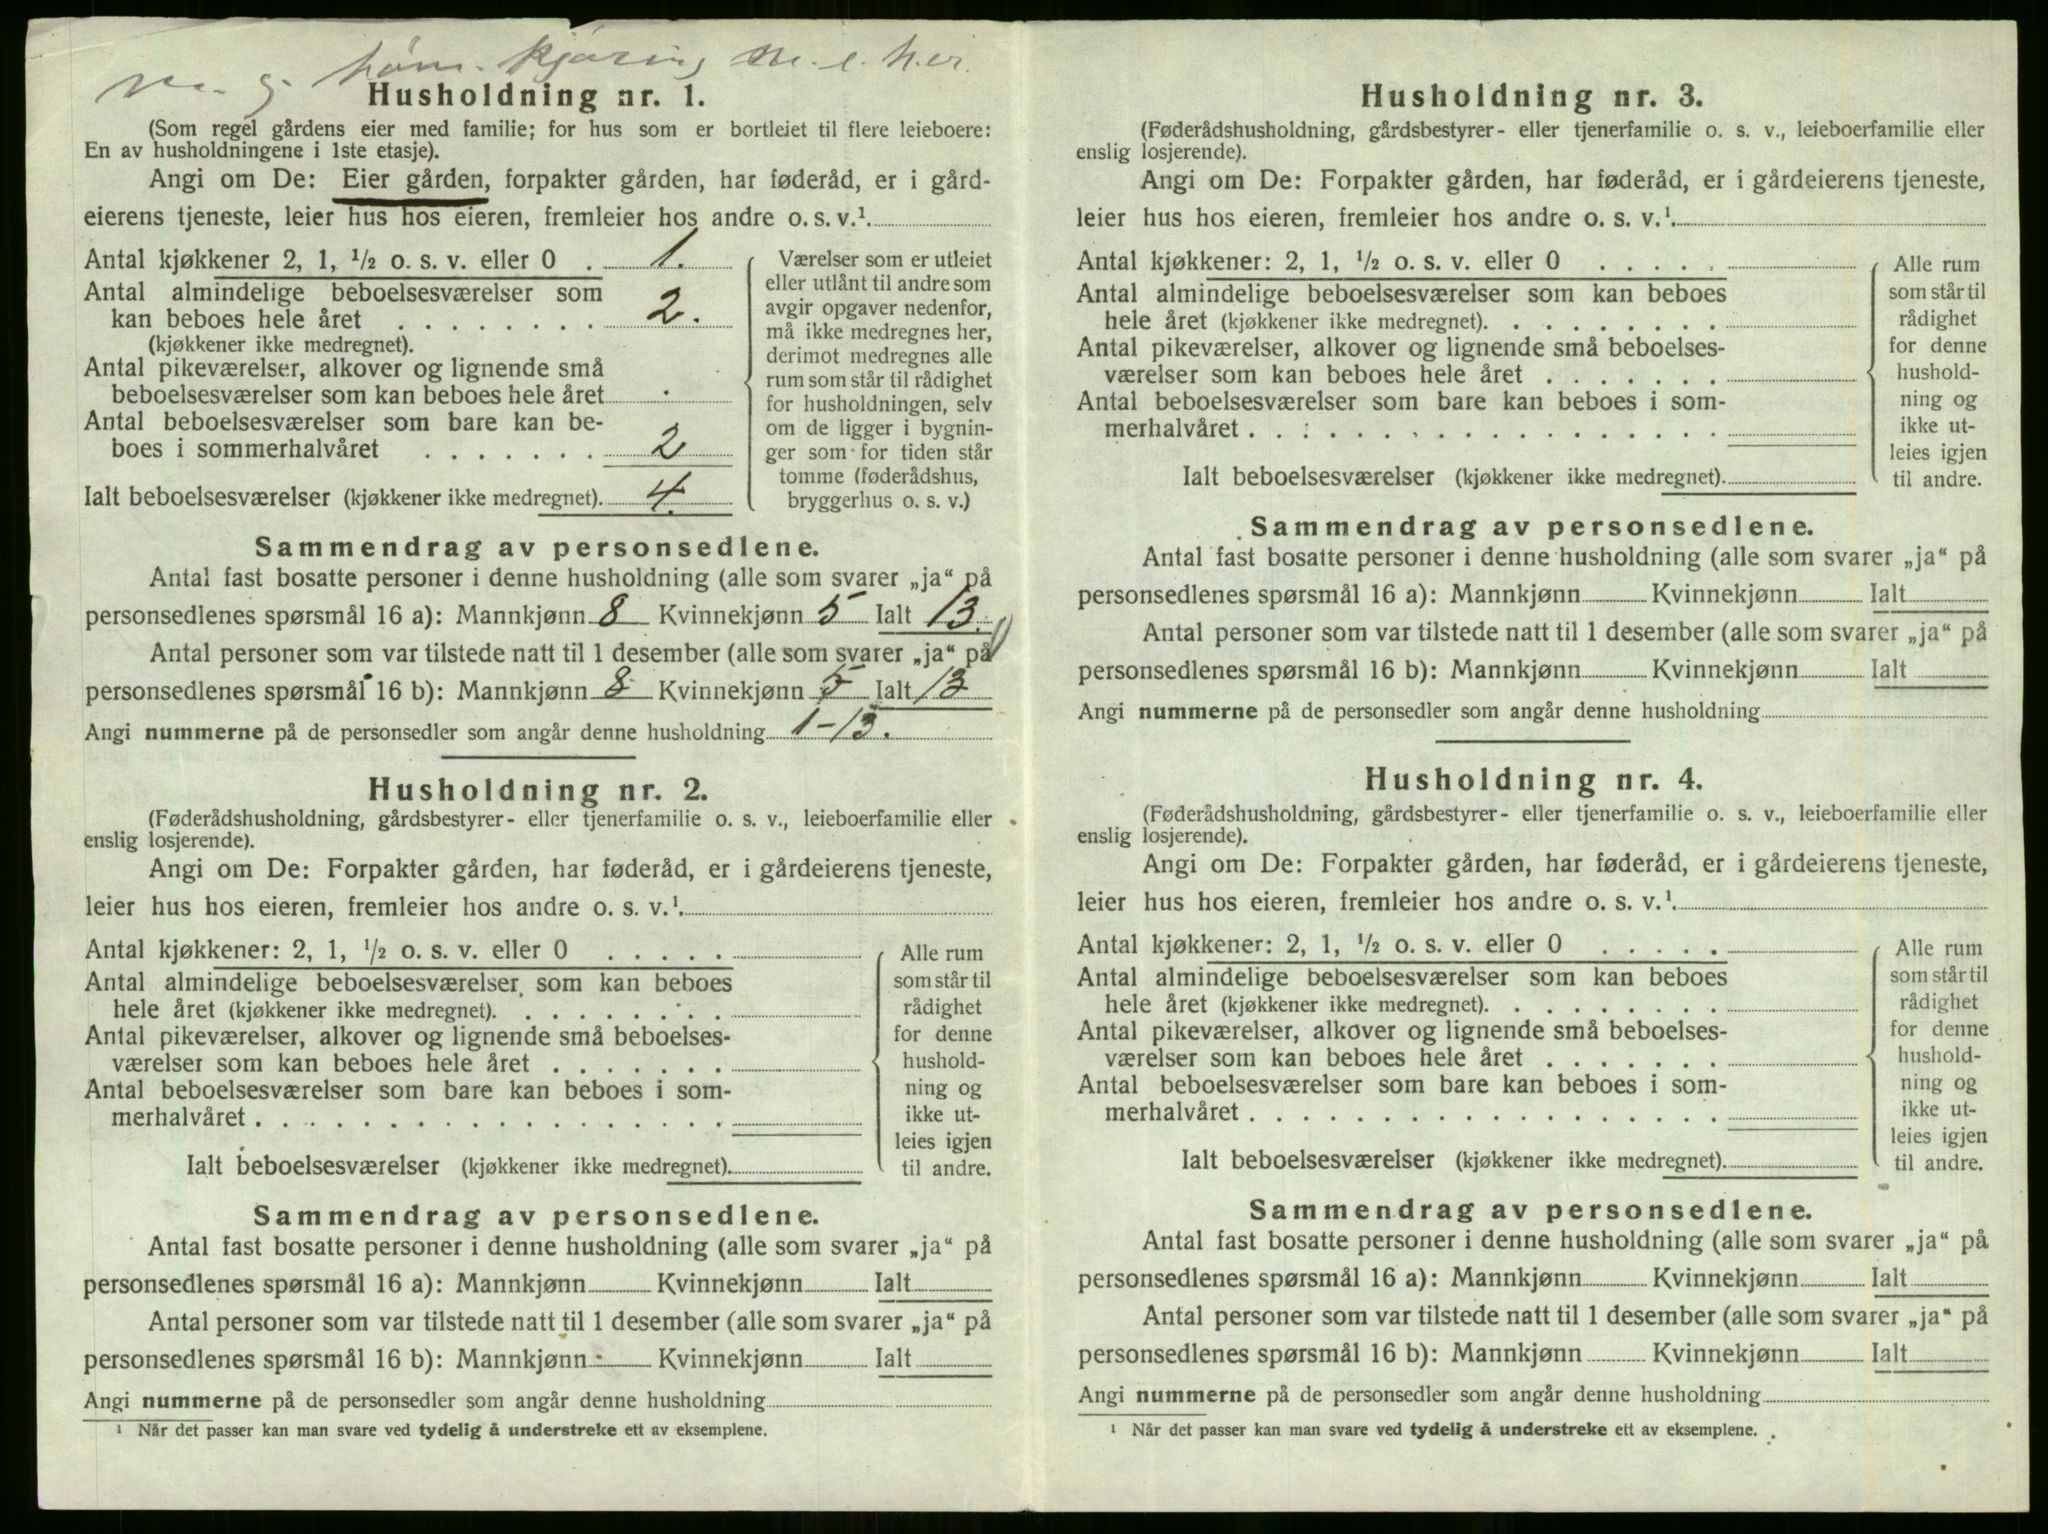 kjøring
Husholdning nr. 1.
(Som regel gårdens eier med familie; for hus som er bortleiet til flere leieboere:
En av husholdningene i 1ste etasje).
Angi om De: Eier gården, forpakter gården, har føderåd, er i gård-
eierens tjeneste, leier hus hos eieren, fremleier hos andre o. s. v.¹
Antal kjøkkener 2, 1, ½ o. s. v. eller 0 . 1.
Antal almindelige beboelsesværelser som
kan beboes hele året . . . . . . . . 2.
(kjøkkener ikke medregnet).
Antal pikeværelser, alkover og lignende små
beboelsesværelser som kan beboes hele året
Antal beboelsesværelser som bare kan be-
boes i sommerhalvåret . . . . . . . 2
Ialt beboelsesværelser (kjøkkener ikke medregnet). 4.
Værelser som er utleiet
eller utlånt til andre som
avgir opgaver nedenfor,
må ikke medregnes her,
derimot medregnes alle
rum som står til rådighet
for husholdningen, selv
om de ligger i bygnin-
ger som for tiden står
tomme (føderådshus,
bryggerhus o. s. v.)
Sammendrag av personsedlene.
Antal fast bosatte personer i denne husholdning (alle som svarer „ja“ på
personsedlenes spørsmål 16 a): Mannkjønn 8 Kvinnekjønn 5 Ialt 13.
Antal personer som var tilstede natt til 1 desember (alle som svarer „ja“ på
personsedlenes spørsmål 16 b): Mannkjønn 8 Kvinnekjønn 5 Ialt 13
Angi nummerne på de personsedler som angår denne husholdning 1-13.
Husholdning nr. 2.
(Føderådshusholdning, gårdsbestyrer- eller tjenerfamilie o. s. v., leieboerfamilie eller
enslig losjerende).
Angi om De: Forpakter gården, har føderåd, er i gårdeierens tjeneste,
leier hus hos eieren, fremleier hos andre o. s. v.¹
Antal kjøkkener: 2, 1, ½ o. s. v. eller 0 . . . . .
Antal almindelige beboelsesværelser som kan beboes
hele året (kjøkkener ikke medregnet). . . . . . . . .
Antal pikeværelser, alkover og lignende små beboelses-
værelser som kan beboes hele året . . . . . . .
Antal beboelsesværelser som bare kan beboes i som-
merhalvåret . . . . . . . . . . . . . . . . . .
Ialt beboelsesværelser (kjøkkener ikke medregnet).
Alle rum
som står til
rådighet
for denne
hushold-
ning og
ikke ut-
leies igjen
til andre.
Sammendrag av personsedlene.
Antal fast bosatte personer i denne husholdning (alle som svarer „ja“ på
personsedlenes spørsmål 16 a): Mannkjønn Kvinnekjønn Ialt
Antal personer som var tilstede natt til 1 desember (alle som svarer „ja“ på
personsedlenes spørsmål 16 b): Mannkjønn Kvinnekjønn Ialt
Angi nummerne på de personsedler som angår denne husholdning
¹ Når det passer kan man svare ved tydelig å understreke ett av eksemplene.
Husholdning nr. 3.
(Føderådshusholdning, gårdsbestyrer- eller tjenerfamilie o. s. v., leieboerfamilie eller
enslig losjerende).
Angi om De: Forpakter gården, har føderåd, er i gårdeierens tjeneste,
leier hus hos eieren, fremleier hos andre o. s. v.¹
Antal kjøkkener: 2, 1, ½ o. s. v. eller 0 . . . . .
Antal almindelige beboelsesværelser som kan beboes
hele året (kjøkkener ikke medregnet). . . . . . . . .
Antal pikeværelser, alkover og lignende små beboelses-
værelser som kan beboes hele året . . . . . . .
Antal beboelsesværelser som bare kan beboes i som-
merhalvåret . . . . . . . . . . . . . . . . . .
Ialt beboelsesværelser (kjøkkener ikke medregnet).
Alle rum
som står til
rådighet
for denne
hushold-
ning og
ikke ut-
leies igjen
til andre.
Sammendrag av personsedlene.
Antal fast bosatte personer i denne husholdning (alle som svarer „ja“ på
personsedlenes spørsmål 16 a): Mannkjønn Kvinnekjønn Ialt
Antal personer som var tilstede natt til 1 desember (alle som svarer „ja“ på
personsedlenes spørsmål 16 b): Mannkjønn Kvinnekjønn Ialt
Angi nummerne på de personsedler som angår denne husholdning
Husholdning nr. 4.
(Føderådshusholdning, gårdsbestyrer- eller tjenerfamilie o. s. v., leieboerfamilie eller
enslig losjerende).
Angi om De: Forpakter gården, har føderåd, er i gårdeierens tjeneste,
leier hus hos eieren, fremleier hos andre o. s. v.¹
Antal kjøkkener: 2, 1, ½ o. s. v. eller 0 . . . . .
Antal almindelige beboelsesværelser som kan beboes
hele året (kjøkkener ikke medregnet). . . . . . . . .
Antal pikeværelser, alkover og lignende små beboelses-
værelser som kan beboes hele året . . . . . . .
Antal beboelsesværelser som bare kan beboes i som-
merhalvåret . . . . . . . . . . . . . . . . . .
Ialt beboelsesværelser (kjøkkener ikke medregnet).
Alle rum
som står til
rådighet
for denne
hushold-
ning og
ikke ut-
leies igjen
til andre.
Sammendrag av personsedlene.
Antal fast bosatte personer i denne husholdning (alle som svarer „ja“ på
personsedlenes spørsmål 16 a): Mannkjønn Kvinnekjønn Ialt
Antal personer som var tilstede natt til 1 desember (alle som svarer „ja“ på
personsedlenes spørsmål 16 b): Mannkjønn Kvinnekjønn Ialt
Angi nummerne på de personsedler som angår denne husholdning
¹ Når det passer kan man svare ved tydelig å understreke ett av eksemplene.